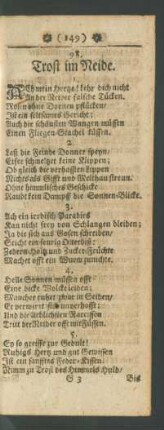 (149)
98.
Trost im Neide.
1.
Ach mein Hertze! kehr dich nicht
An der Neider falsche Tücken.
Rosen ohne Dornen pflücken/
Ist ein seltsames Gericht:
Auch die schönsten Wangen müssen
Einen Fliegen-Stachel küssen.
2.
Laß die Feinde Donner speyn,
Eifer schmeltzet keine Klippen;
Ob gleich der verhaßten Lippen
Nichts als Gifft und Molchsaft streun.
Ohne himmlisches Geschicke
Raubt kein Dampff die Sonnen-Blicke.
3.
Ach ein irrdisch Paradies
Kan nicht frey von Schlangen bleiben;
Ja die sich aus Gosen schreiben/
Seicht ein feurig Hinderniß:
Cedern-Holtz und Zucker-Früchte
Machet offt ein Wurm zunichte.
4.
Helle Sonnen müssen offt
Eine dicke Wolcke leiden;
Mancher ruhet zwar in Seiden/
Er verwirrt doch unverhofft:
Und die lieblichsten Narcissen
Tritt der Neider offt mit Füssen.
5.
Ey so greiffe zur Gedult!
Ruhigs Hertz und gut Gewissen
Ist ein sanfftes Feder-Küssen.
Nimm zu Trost des Himmels Huld/
G 3 Bis